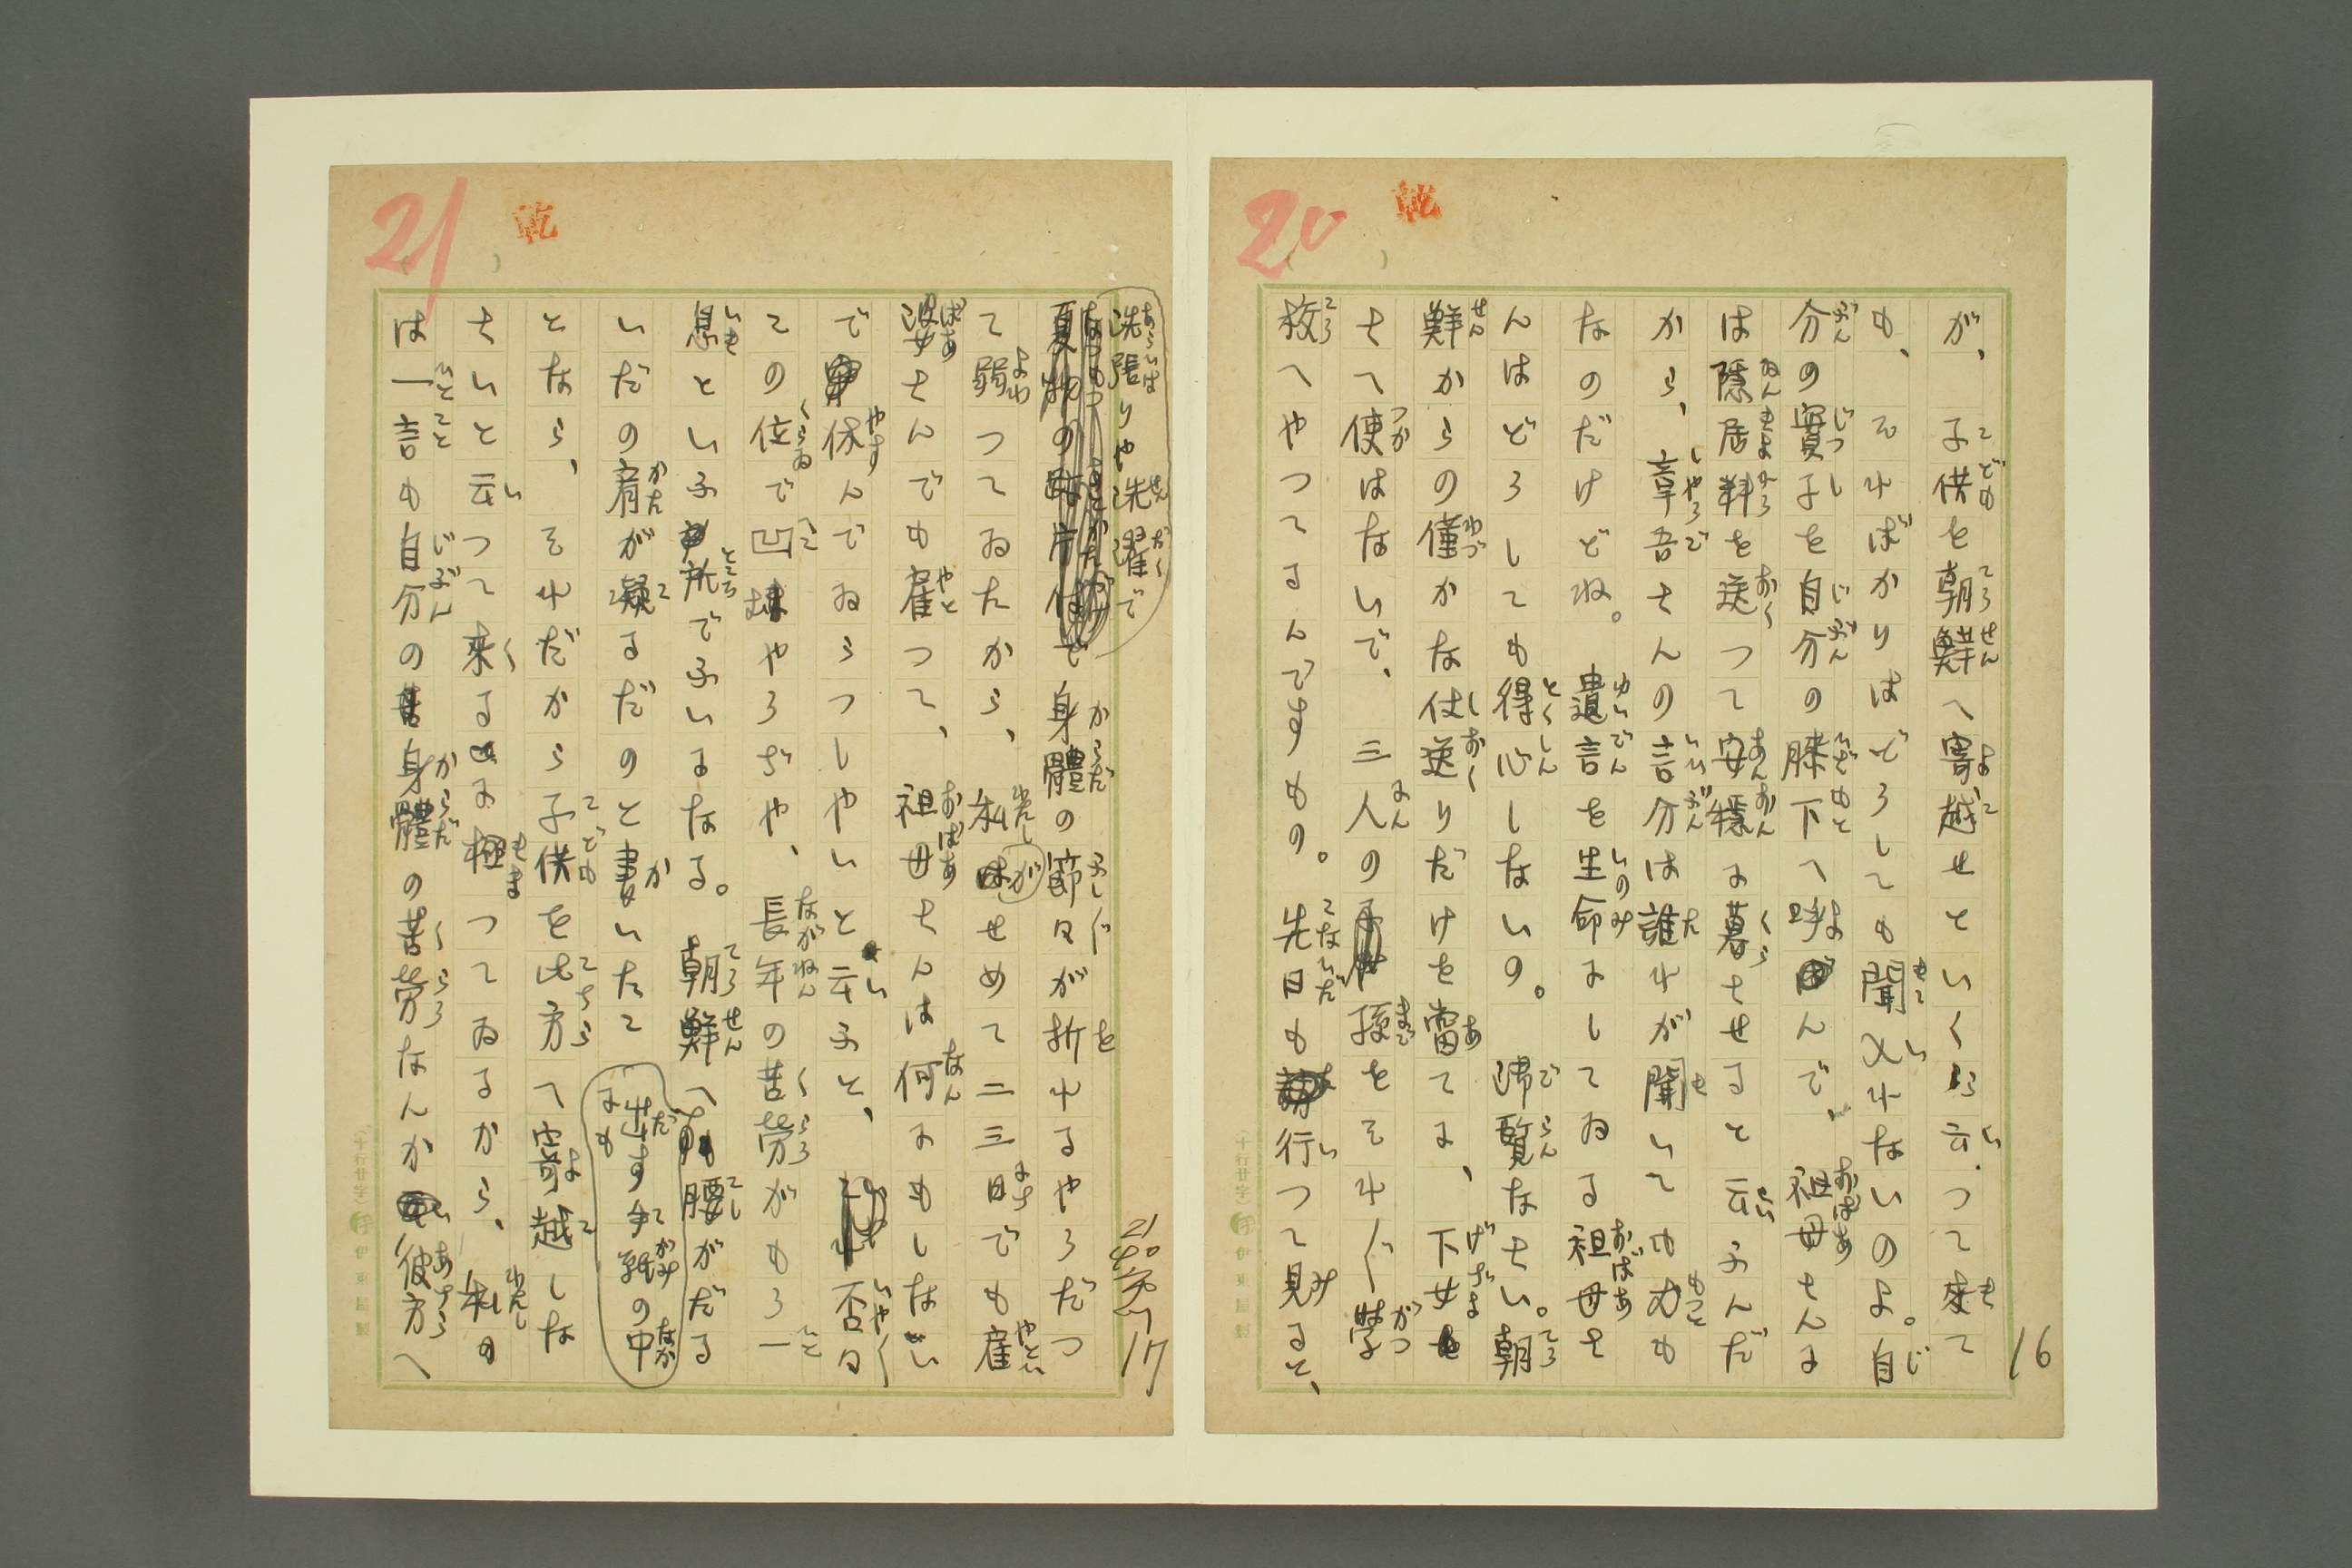 16
20
乾
が、子供を朝鮮へ寄越せといくら云つて来て
も、そればかりはどうしても聞入れないのよ。自
分の實子を自分の膝下へ呼んで、祖母さんに
は隠居料を送つて安穏に暮させると云ふんだ
から、章吾さんの言分は誰れが聞いても尤も
なのだけどね。遺言を生命にしてゐる祖母さ
んはどうしても得心しないの。御覧なさい。朝
鮮からの僅かな仕送りだけを當てに、下女
さへ使はないで、三人の孫をそれ〴〵學
校へやつてるんですもの。先日も行つて見ると、
17
21
乾
洗張りや洗濯で
身體の節々が折れるやうだつ
て弱つてゐたから、私がせめて二三日でも雇
婆さんでも雇つて、祖母さんは何にもしない
で休んでゐらつしやいと云ふと、否々
この位で凹垂やうぢや、長年の苦勞がもう一
息といふ所でふいになる。朝鮮へ腰がだる
いだの肩が凝るだのと書いたこ
出す手紙の中
にも
となら、それだから子供を此方へ寄越しな
さいと云つて来るに極つてゐるから、私の
は一言も自分の身體の苦勞なんか彼方へ